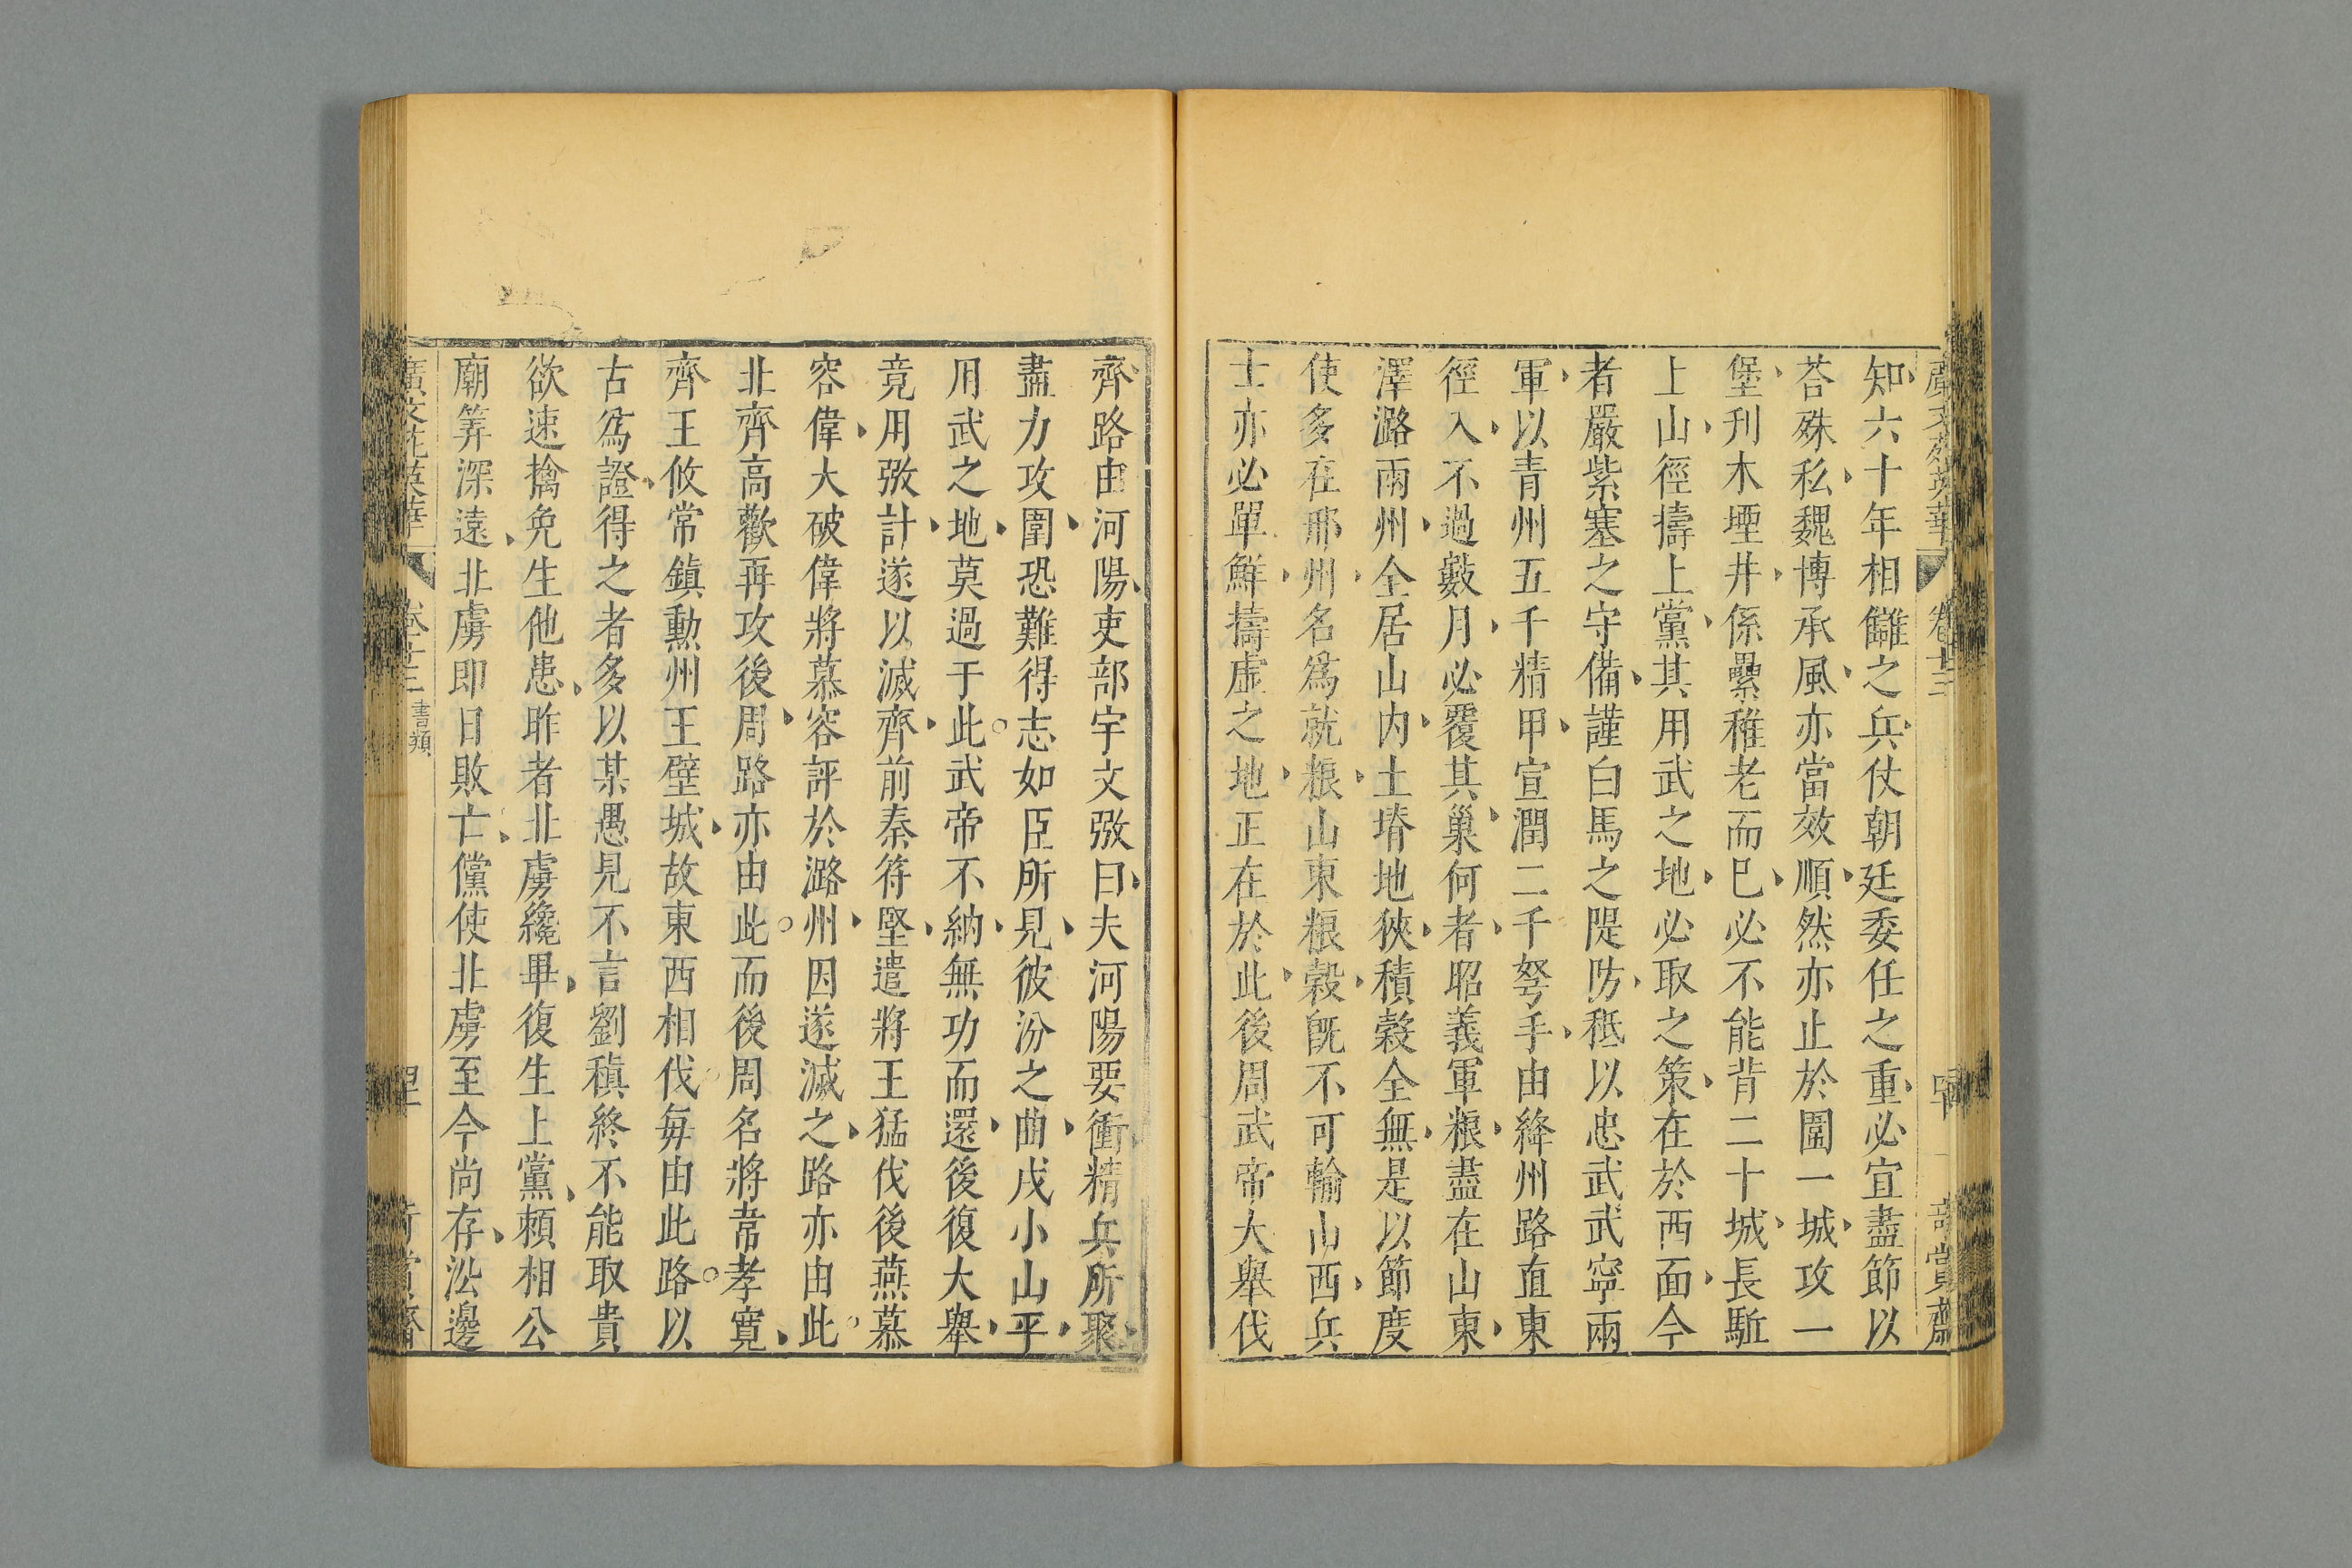 廣文苑英華 卷十三 四十 奇賞齋
知六十年相讎之兵仗朝廷委任之重必宜盡節以
荅殊私魏博承風亦當效順然亦止於圍一城攻一
堡刋木堙井係纍稚老而巳必不能背二十城長駈
上山徑擣上黨其用武之地必取之策在於西面今
者嚴紫塞之守備謹白馬之隄防秪以忠武武寧兩
軍以青州五千精甲宣潤二千弩手由絳州路直東
徑入不過數月必覆其巢何者昭義軍粮盡在山東
澤潞兩州全居山内土瘠地狹積榖全無是以節度
使多在邢州名爲就粮山東粮榖旣不可輸山西兵
士亦必單鮮擣虛之地正在於此後周武帝大舉伐
齊路由河陽吏部宇文㢸曰夫河陽要衝精兵所聚
盡力攻圍恐難得志如臣所見彼汾之曲戍小山平
用武之地莫過于此武帝不納無功而還後復大舉
竟用㢸計遂以滅齊前秦符堅遣將王猛伐後燕慕
容偉大破偉將慕容評於潞州因遂滅之路亦由此
北齊高歡再攻後周路亦由此而後周名將韋孝寛
齊王攸常鎮勲州王壁城故東西相伐每由此路以
古爲證得之者多以某愚見不言劉稹終不能取貴
欲速擒免生他患昨者北虜纔畢復生上黨頼相公
廟筭深遠北虜即日敗亡儻使北虜至今尚存㳂邊
廣文苑英華 卷十三 書類 奇賞齋